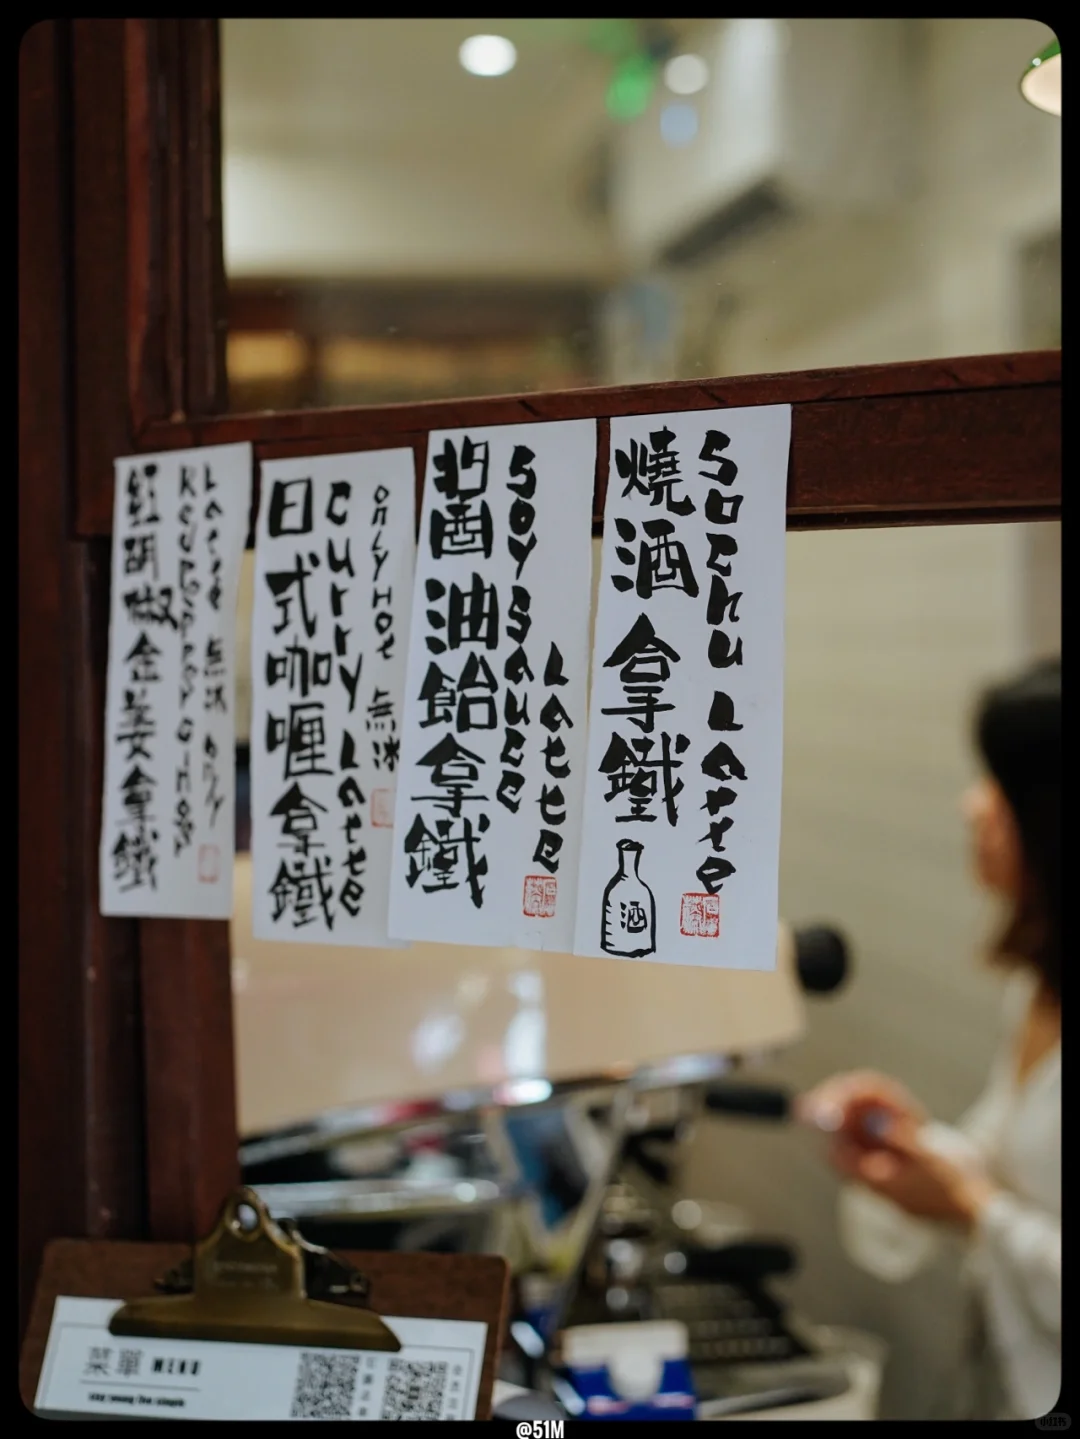 燒酒拿鐵
Sochu Latte
酒
醬油飴拿鐵
Soy Sauce
Latte
日式咖喱拿鐵
Curry Latte
only Hot 無冰
紅胡椒金姜拿鐵
Red Pepper Ginger
Latte 無冰 only
MENU
@51M